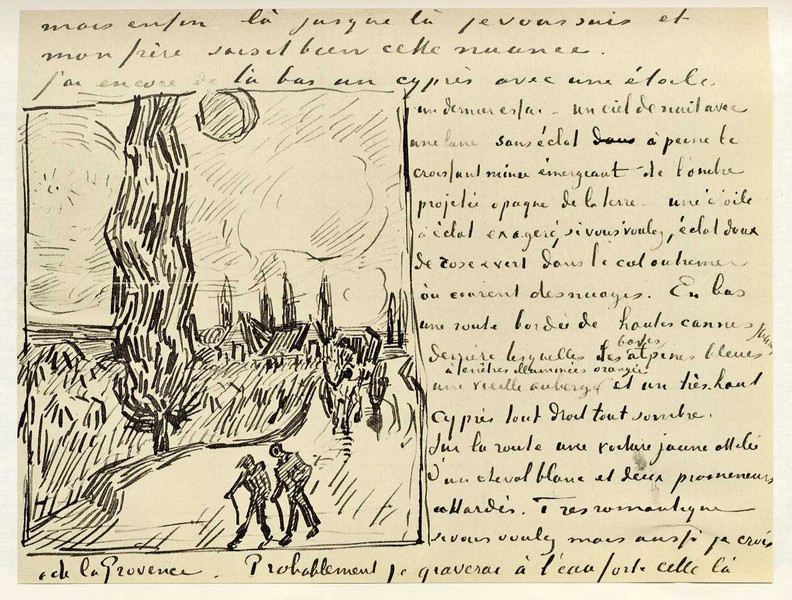 mais enfin là jusque là je vous suis et
mon frère saisit bien cette nuance.
j'ai encore de là bas un cyprès avec une étoile
un dernier essai - un ciel de nuit avec
une lune sans éclat dans à peine le
croissant mince émergeant de l'ombre
projetée opaque de la terre - une étoile
à éclat exageré, si vous voulez, éclat doux
de rose & vert dans le ciel outremer
où courent des nuages. En bas
une route bordée de hautes cannes jaunes
derrière lesquelles les basses alpines bleues
une vieille auberge à fenêtres illuminées orangées et un très haut
cyprès tout droit tout sombre.
Sur la route une voiture jaune attelée
d'un cheval blanc et deux promeneurs
attardés. Très romantique
si vous voulez mais aussi je crois
de la Provence. Probablement je graverai à l'eau forte celle là